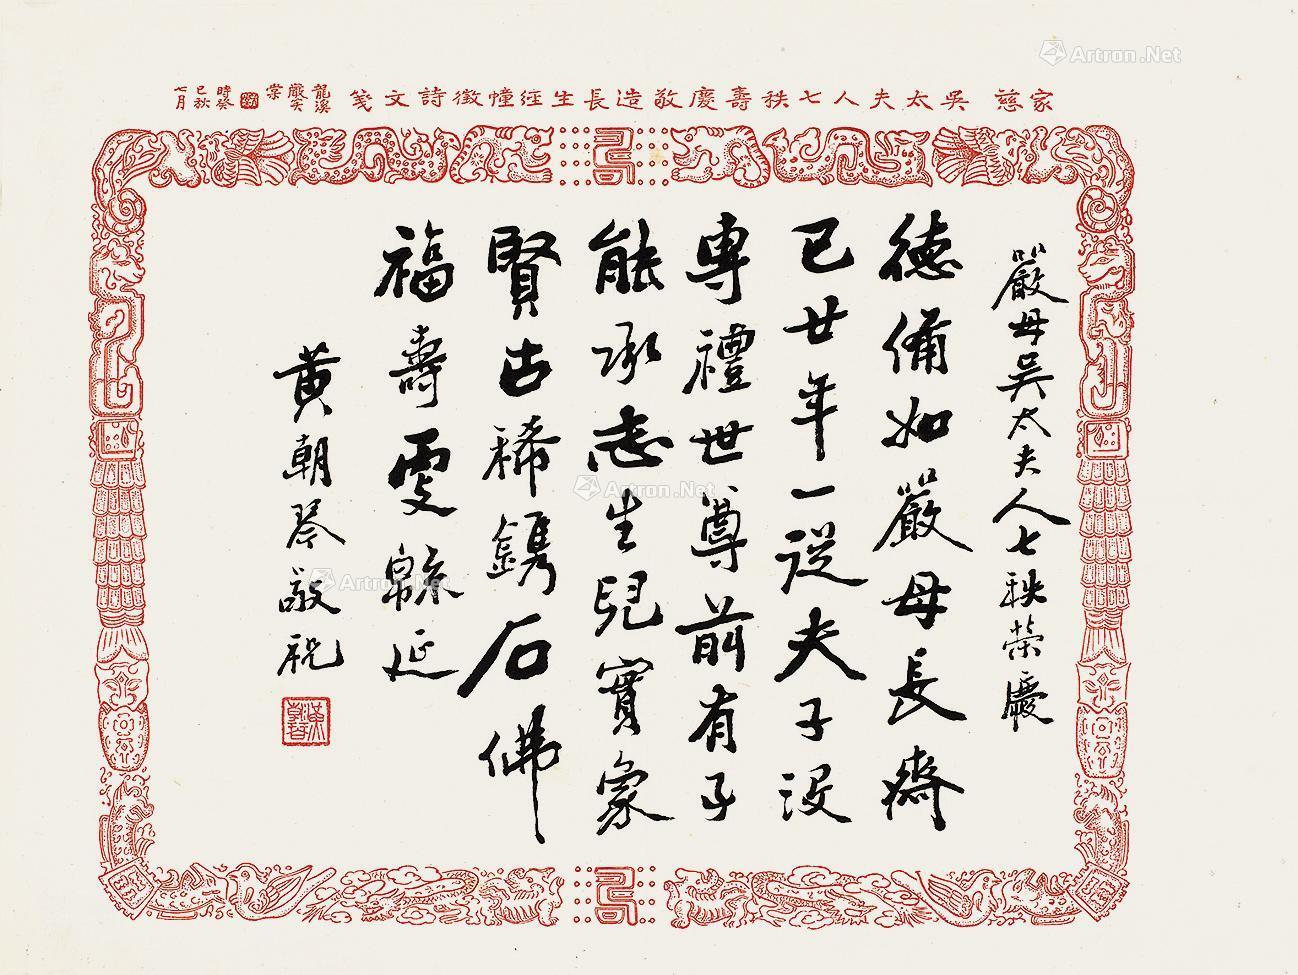 家慈吳太夫人七秩壽慶敬造長生經幢徵詩文箋
龍溪嚴笑棠
時癸巳秋七月
嚴母吳太夫人七秩榮慶
德備如嚴母長齋
已廿年一從夫子設
專禮世尊前有子
能承志生兒實象
賢古稀鐫石佛
福壽更緜延
黃朝琴敬祝
Artron.Net
Artron.Net
Artron.Net